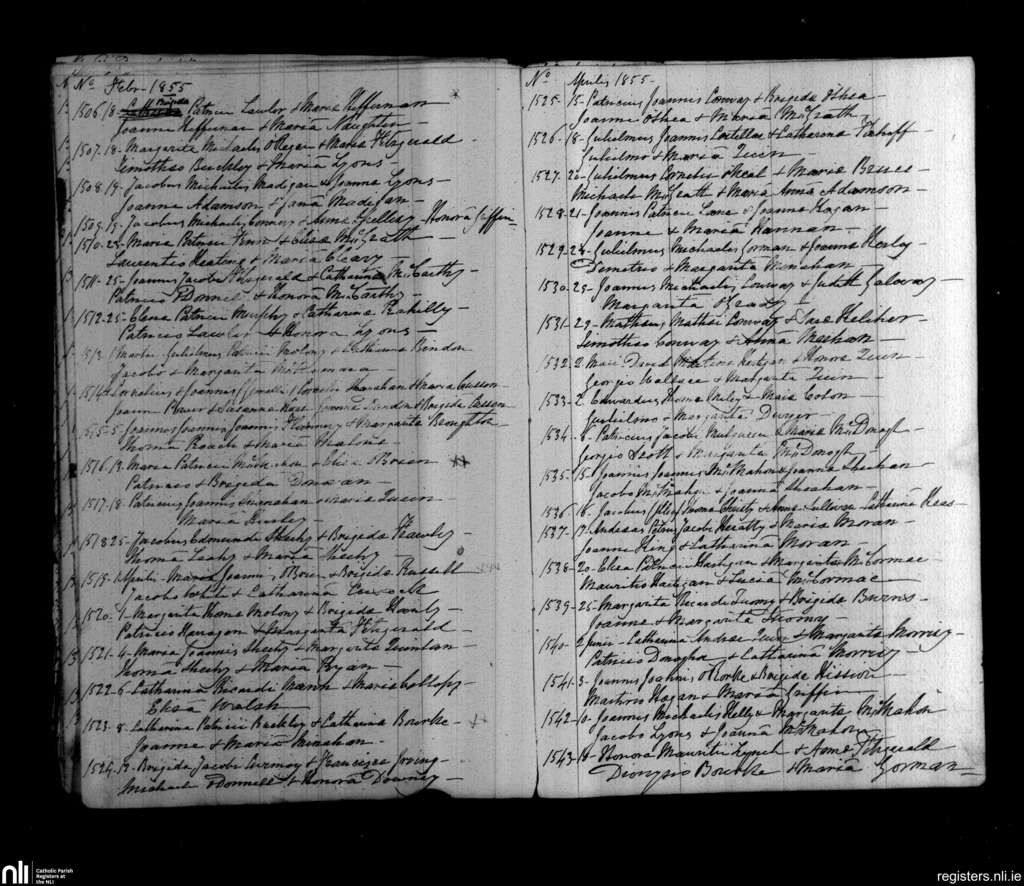 No Febr - 1855
1506 - 18 - Brigida Patricii Lawlor & Maria Heffernan
Joanne Heffernan & Maria Naughton
1507 - 18 - Margarita Michaelis O'Regan & Maria Fitzgerald
Timotheo Buckley & Maria Lyons -
1508 - 19 - Jacobus Michaelis Madigan & Joanna Lyons -
Joanne Adamson & Madigan -
1509 - 19 - Jacobus Michaelis & Anna - Honora Griffin
1510 - 23 - Maria Patricii & Elisa McGrath -
Laurentio Keating & Maria Cleary
1511 - 25 - Joannis Jacobi Fitzgerald & Catharina McCarthy -
Patricio O'Donnell & Honora McCarthy -
1512 - 25 - Elena Patricii Murphy & Catharina Rahilly -
Patricio Lawlor & Honora Lyons -
1513 - 1 Martii - Gulielmus Patricii Molony & Catharina Riedon
Jacobo & Margarita McNamara -
1514 - Cornelius & Joannis Cornelii Shanahan & Maria Cusson -
Joanne & Susanna & Brigida Cusson -
1515 - 5 - Joannis & Margarita Naughton
Thoma Roach & Maria Malone -
1516 - 13 - Maria Patricii & Elisa O'Brien
Patricio & Brigida Donovan -
1517 - 18 - Patricius Joannis Shanahan & Maria Quin -
Maria
1518 - 25 - Jacobus Edmundi Sheehy & Brigida
Thoma Leahy & Maria Sheehy -
1519 - 1 Aprilis - Joannis O'Brien & Brigida Russell
Jacobo White & Catharina Cussack
1520 - 1 - Margarita Thoma Molony & Brigida Hanly -
Patricio Harragan & Margarita Fitzgerald -
1521 - 4 - Maria Joannis Sheehy & Margarita Quinlan -
Thoma Sheehy & Maria Ryan -
1522 - 6 - Catharina Ricardi Mann & Maria Collopy -
Elisa Walsh
1523 - 8 - Catharina Patricii Buckley & Catharina Bourke -
Joanne & Maria Minahan -
1524 - 13 - Brigida Jacobi & Francisca
Michael O'Donnell & Honora Downey -
No Aprilis 1855 -
1525 - 15 - Patricius Joannis Conway & Brigida O'Shea
Joanne O'Shea & Maria McGrath -
1526 - 18 - Gulielmus Joannis Costelloe & Catharina
Gulielmo & Maria Quin -
1527 - 20 - Gulielmus Cornelii O'Neal & Maria Besse -
Michaele McGrath & Maria Anna Adamson -
1528 - 21 - Joannis Patricii Lane & Joanna Hogan -
Joanne & Maria Hannan -
1529 - 24 - Gulielmus Michaelis Gorman & Joanna Healy -
Demetrio & Margarita Minahan -
1530 - 25 - Joannis Michaelis Conway & Judith Galway -
Margarita O'Grady -
1531 - 29 - Mathaeus Mathei Conway & Kelliher -
Timotheo Conway & Anna Meehan -
1532 - 2 Maii - David Hartigan & Honora Quin -
Georgio Wallace & Margarita Quin -
1533 - 2 - Edwardus Thoma & Maria
Gulielmo & Margarita Dwyer -
1534 - 6 - Patricius Jacobi Mulqueen & Maria McDonogh -
Georgio Scott & Margarita McDonogh -
1535 - 15 - Joannis Joannis McMahon & Joanna Sheehan -
Jacobo McMahon & Joanna Sheehan -
1536 - 16 - Jacobus Thoma Sheehy & Anna - Catharina Hess -
1537 - 17 - Andreas Jacobi & Maria Moran -
Joanne King & Catharina Moran -
1538 - 20 - Elisa Patricii Hartigan & Margarita McCormac -
Mauritio Hartigan & Lucia McCormac -
1539 - 25 - Margarita Ricardi Twomy & Brigida Burns -
Joanne & Margarita Twomy -
1540 - 2 Junii - Catharina Andreae & Margarita Morrisy -
Patricio Donoghu & Catharina Morrisy -
1541 - 3 - Joannis Joannis O'Rorke & Brigida Hession -
Martino Hogan & Maria Griffin
1542 - 10 - Joannis Michaelis Kelly & Margarita McMahon
Jacobo Lyons & Joanna McMahon
1543 - 14 - Honora Mauritii Lynch & Anna Fitzgerald
Dionysio Bourke & Maria Gorman -
nli Catholic Parish
Registers at
the NLI
registers.nli.ie